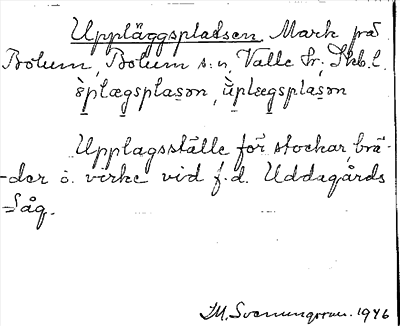 Uppläggsplatsen Mark på
Bolum, Bolum s:n, Valle hr, Skb.l.
ùplægsplasɔn, ùplægsplasɔn
Upplagsställe för stockar, brä-
-der o. virke vid f.d. Uddagårds
såg.
J.M. Svenungsson. 1946